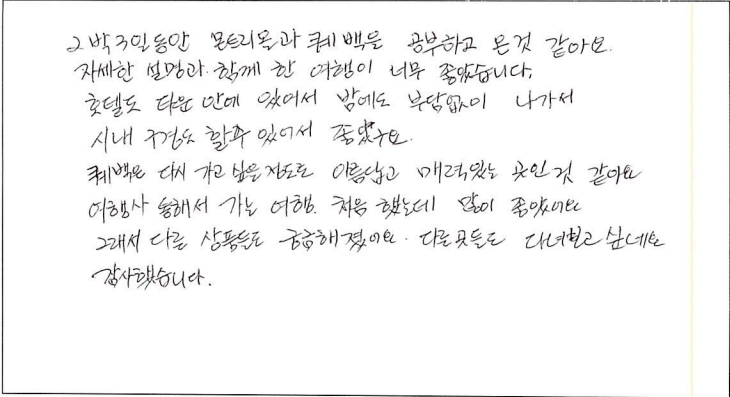 2박3일동안 몬트리올과 퀘백을 공부하고 온것 같아요.
자세한 설명과 함께 한 여행이 너무 좋았습니다.
호텔도 타운 안에 있어서 밤에도 부담없이 나가서
시내 구경도 할수 있어서 좋았구요.
퀘백은 다시 가고 싶을 정도로 아름답고 매력있는 곳인것 같아요
여행사 통해서 가는 여행. 처음 했는데 많이 좋았어요
그래서 다른 상품들도 궁금해졌어요. 다른곳들도 다녀보고 싶네요
감사했습니다.